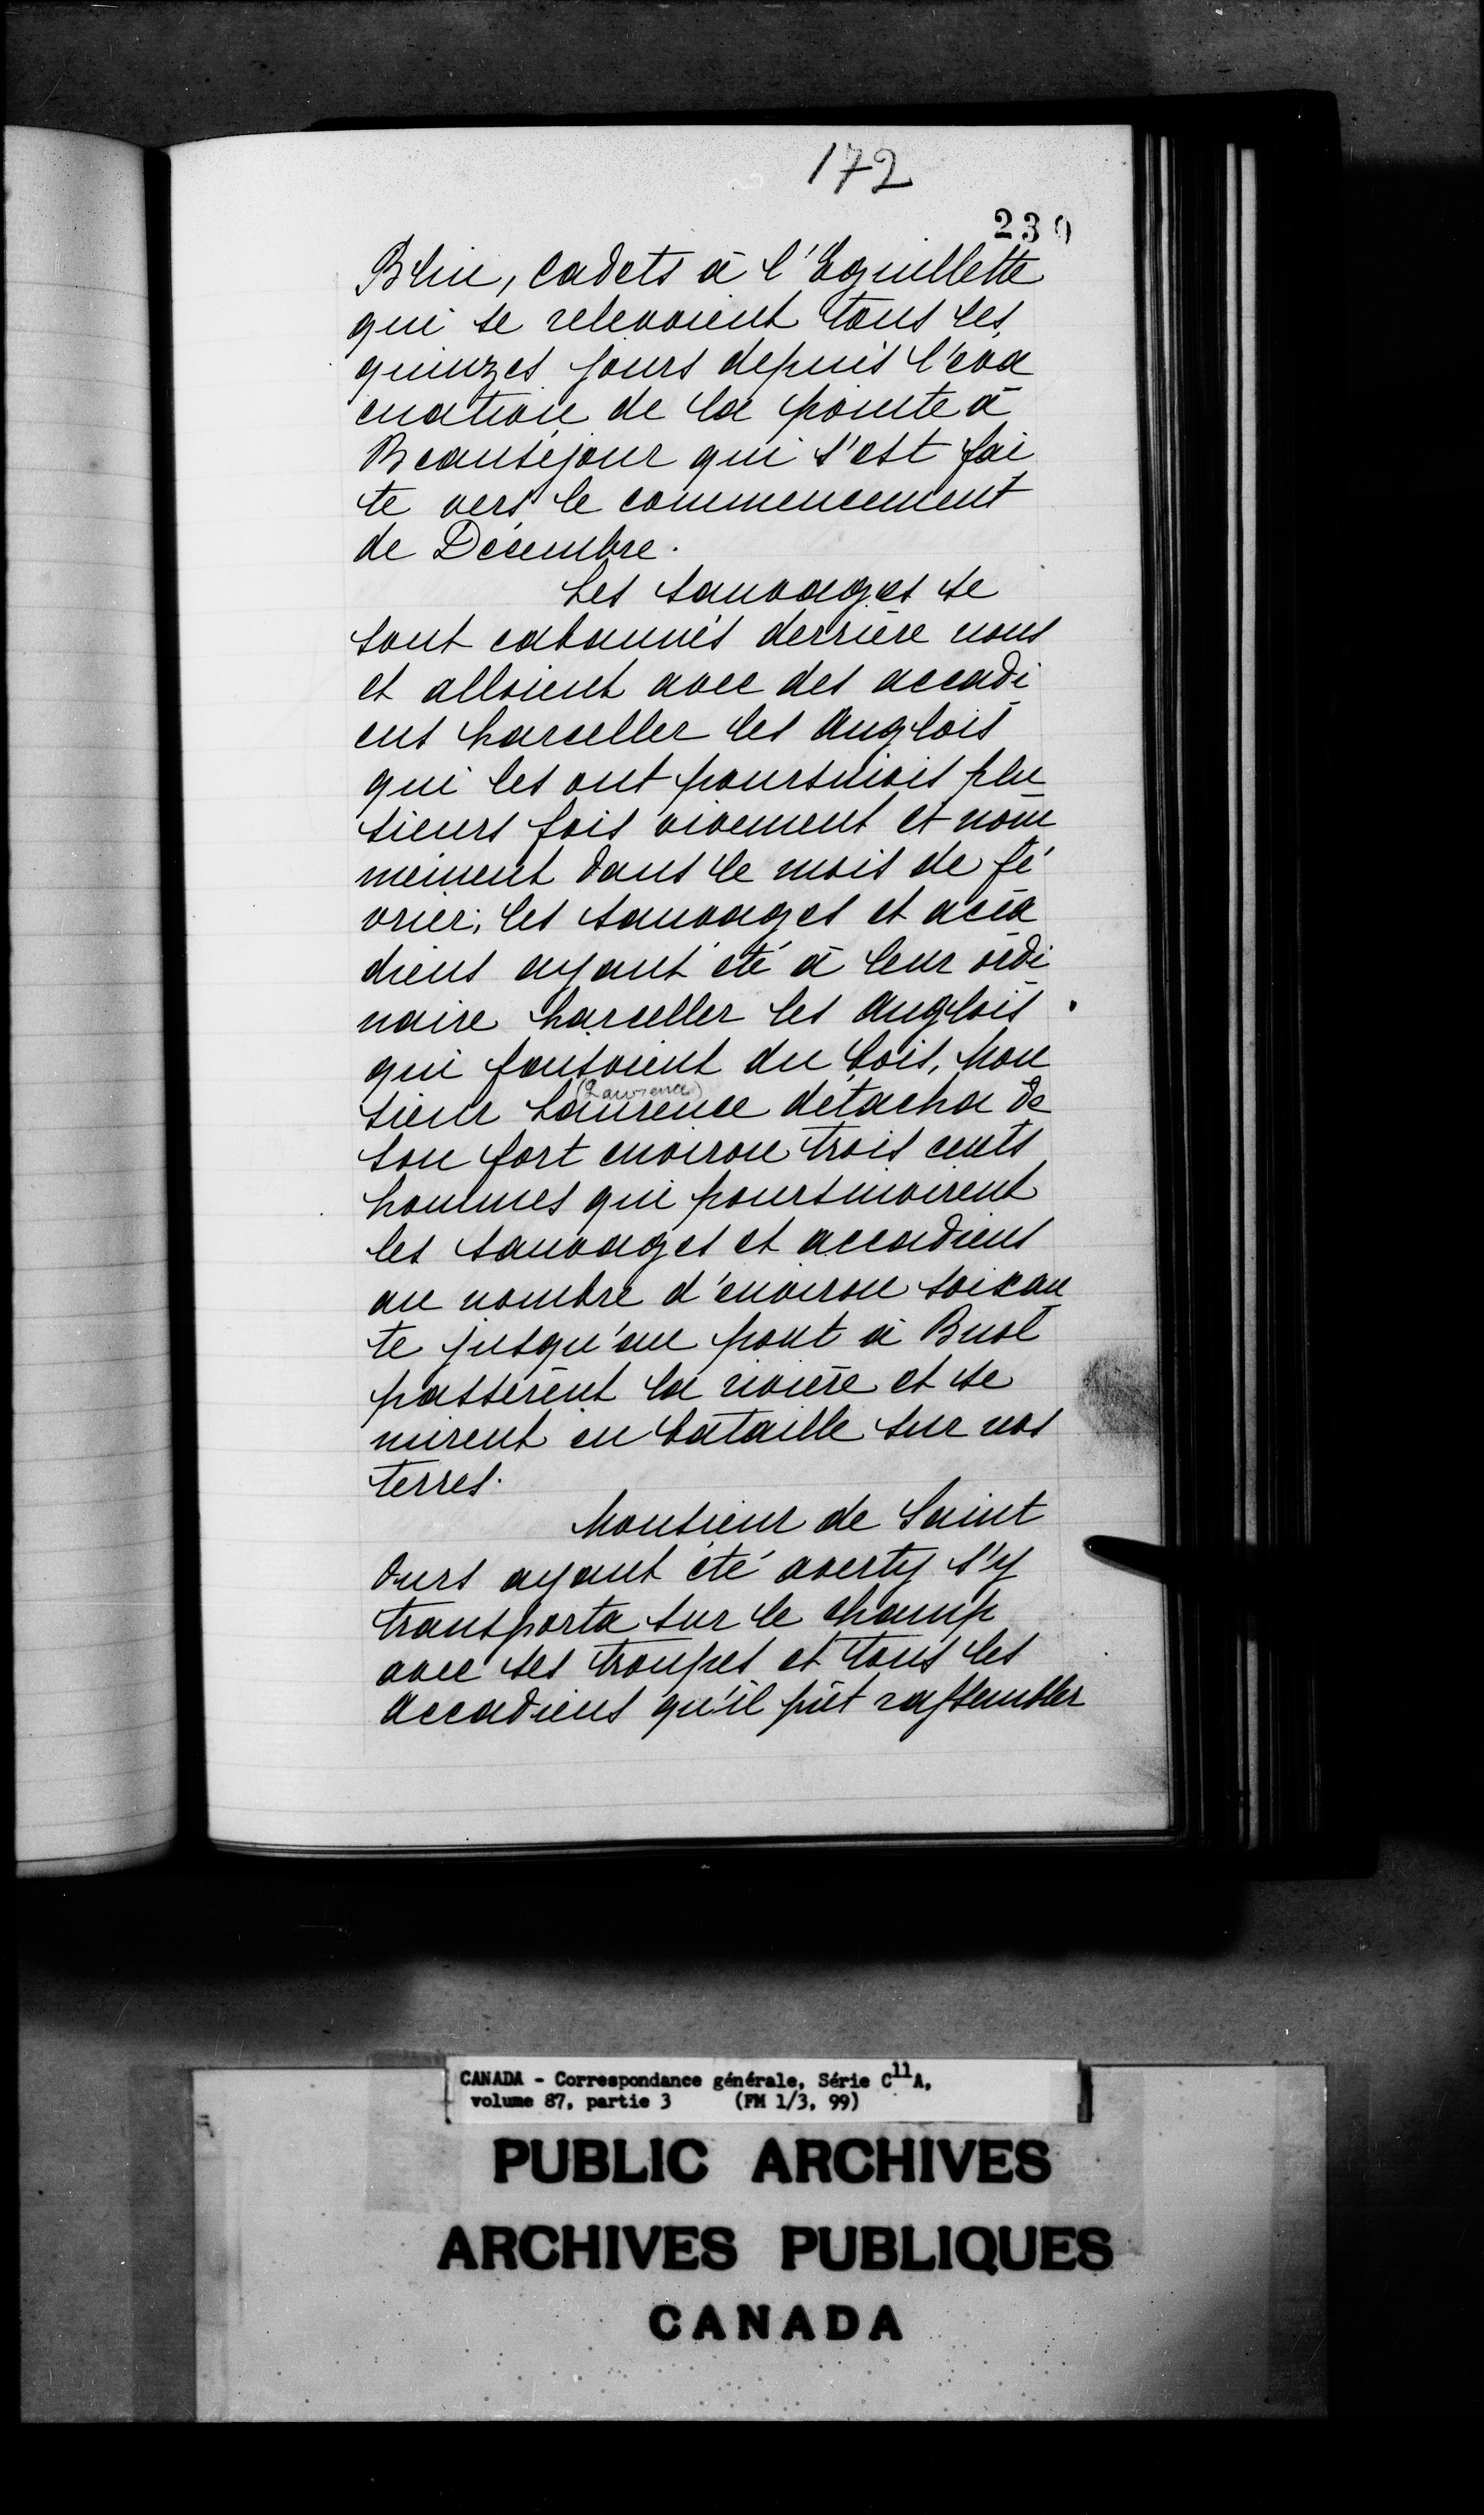 172
239
Blin, Cadets à l'Eguillette
qui se relevoient tous les
quinzes jours depuis l'éva
cuation de la pointe à
Beauséjour qui s'est fai
te vers le commencement
de Décembre.
Les sauvages se
sont cabannés derrière nous
et alloient avec des accadi
ens harceller les Anglois
qui les ont poursuivis plu
sieurs fois vivement et nom
mément dans le mois de fé
vrier; les sauvages et acca
diens ayant été à leur ordi
naire harceller les Anglois
qui faisoient du bois, Mon
(Lawrence)
sieur Laurence détacha de
son fort environ trois cents
hommes qui poursuivirent
les sauvages et accadiens
au nombre d'environ soixan
te jusqu'au pont à Buot
passèrent la rivière et se
mirent en bataille sur nos
terres.
Monsieur de Saint
Ours ayant été averty s'y
transporta sur le champ
avec ses troupes et tous les
accadiens qu'il pût rassembler
CANADA - Correspondance générale, Série C11A,
volume 87, partie 3 (FM 1/3, 99)
PUBLIC ARCHIVES
ARCHIVES PUBLIQUES
CANADA